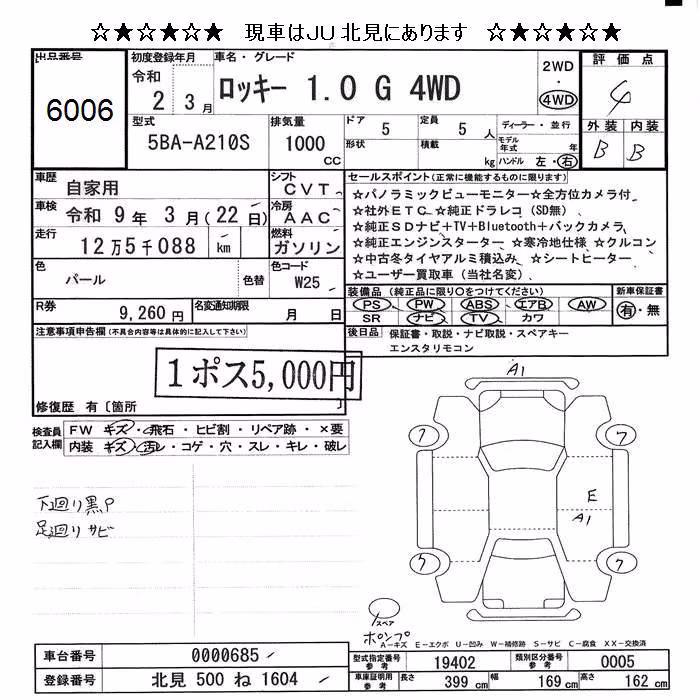 ☆★☆★☆★ 現車はＪＵ北見にあります ☆★☆★☆★
出品番号
6006
初度登録年月
令和
2 3月
車名・グレード
ロッキー 1.0 G 4WD
2WD
・
4WD
評価点
4
外装 内装
B B
型式
5BA-A210S
排気量
1000
CC
ドア 5
定員 5 人
形状
積載 kg
ディーラー・並行
モデル年式 年
ハンドル 左・右
車歴
自家用
シフト
CVT
車検
令和 9年 3月(22日)
冷房
AAC
走行
12万5千088 km
燃料
ガソリン
色
パール
色替
色コード
W25
R券
9,260円
名変通知期限
月 日
セールスポイント(正常に機能するものに限ります)
☆パノラミックビューモニター☆全方位カメラ付
☆社外ＥＴＣ☆純正ドラレコ（SD無）
☆純正ＳＤナビ＋TV＋Bluetooth＋バックカメラ
☆純正エンジンスターター ☆寒冷地仕様 ☆クルコン
☆中古冬タイヤアルミ積込み ☆シートヒーター
☆ユーザー買取車（当社名変）
装備品(純正品に限り○をつけてください)
PS PW ABS エアB AW
SR ナビ TV カワ
新車保証書
有・無
後日品 保証書・取説・ナビ取説・スペアキー
エンスタリモコン
注意事項申告欄(不具合内容等は具体的に記入して下さい)
1ポス5,000円
修復歴 有〔箇所 〕
検査員記入欄
FW キズ・飛石・ヒビ割・リペア跡・×要
内装 キズ・汚レ・コゲ・穴・スレ・キレ・破レ
下廻り黒P
足廻りサビ
A1
ワ ワ
E
A1
ワ ワ
スペア
ポンプ
A－キズ E－エクボ U－凹み W－補修跡 S－サビ C－腐食 XX－交換済
車台番号 0000685
登録番号 北見 500 ね 1604
型式指定番号 参考 19402
類別区分番号 参考 0005
車庫証明用 参考 長さ 399 cm 幅 169 cm 高さ 162 cm